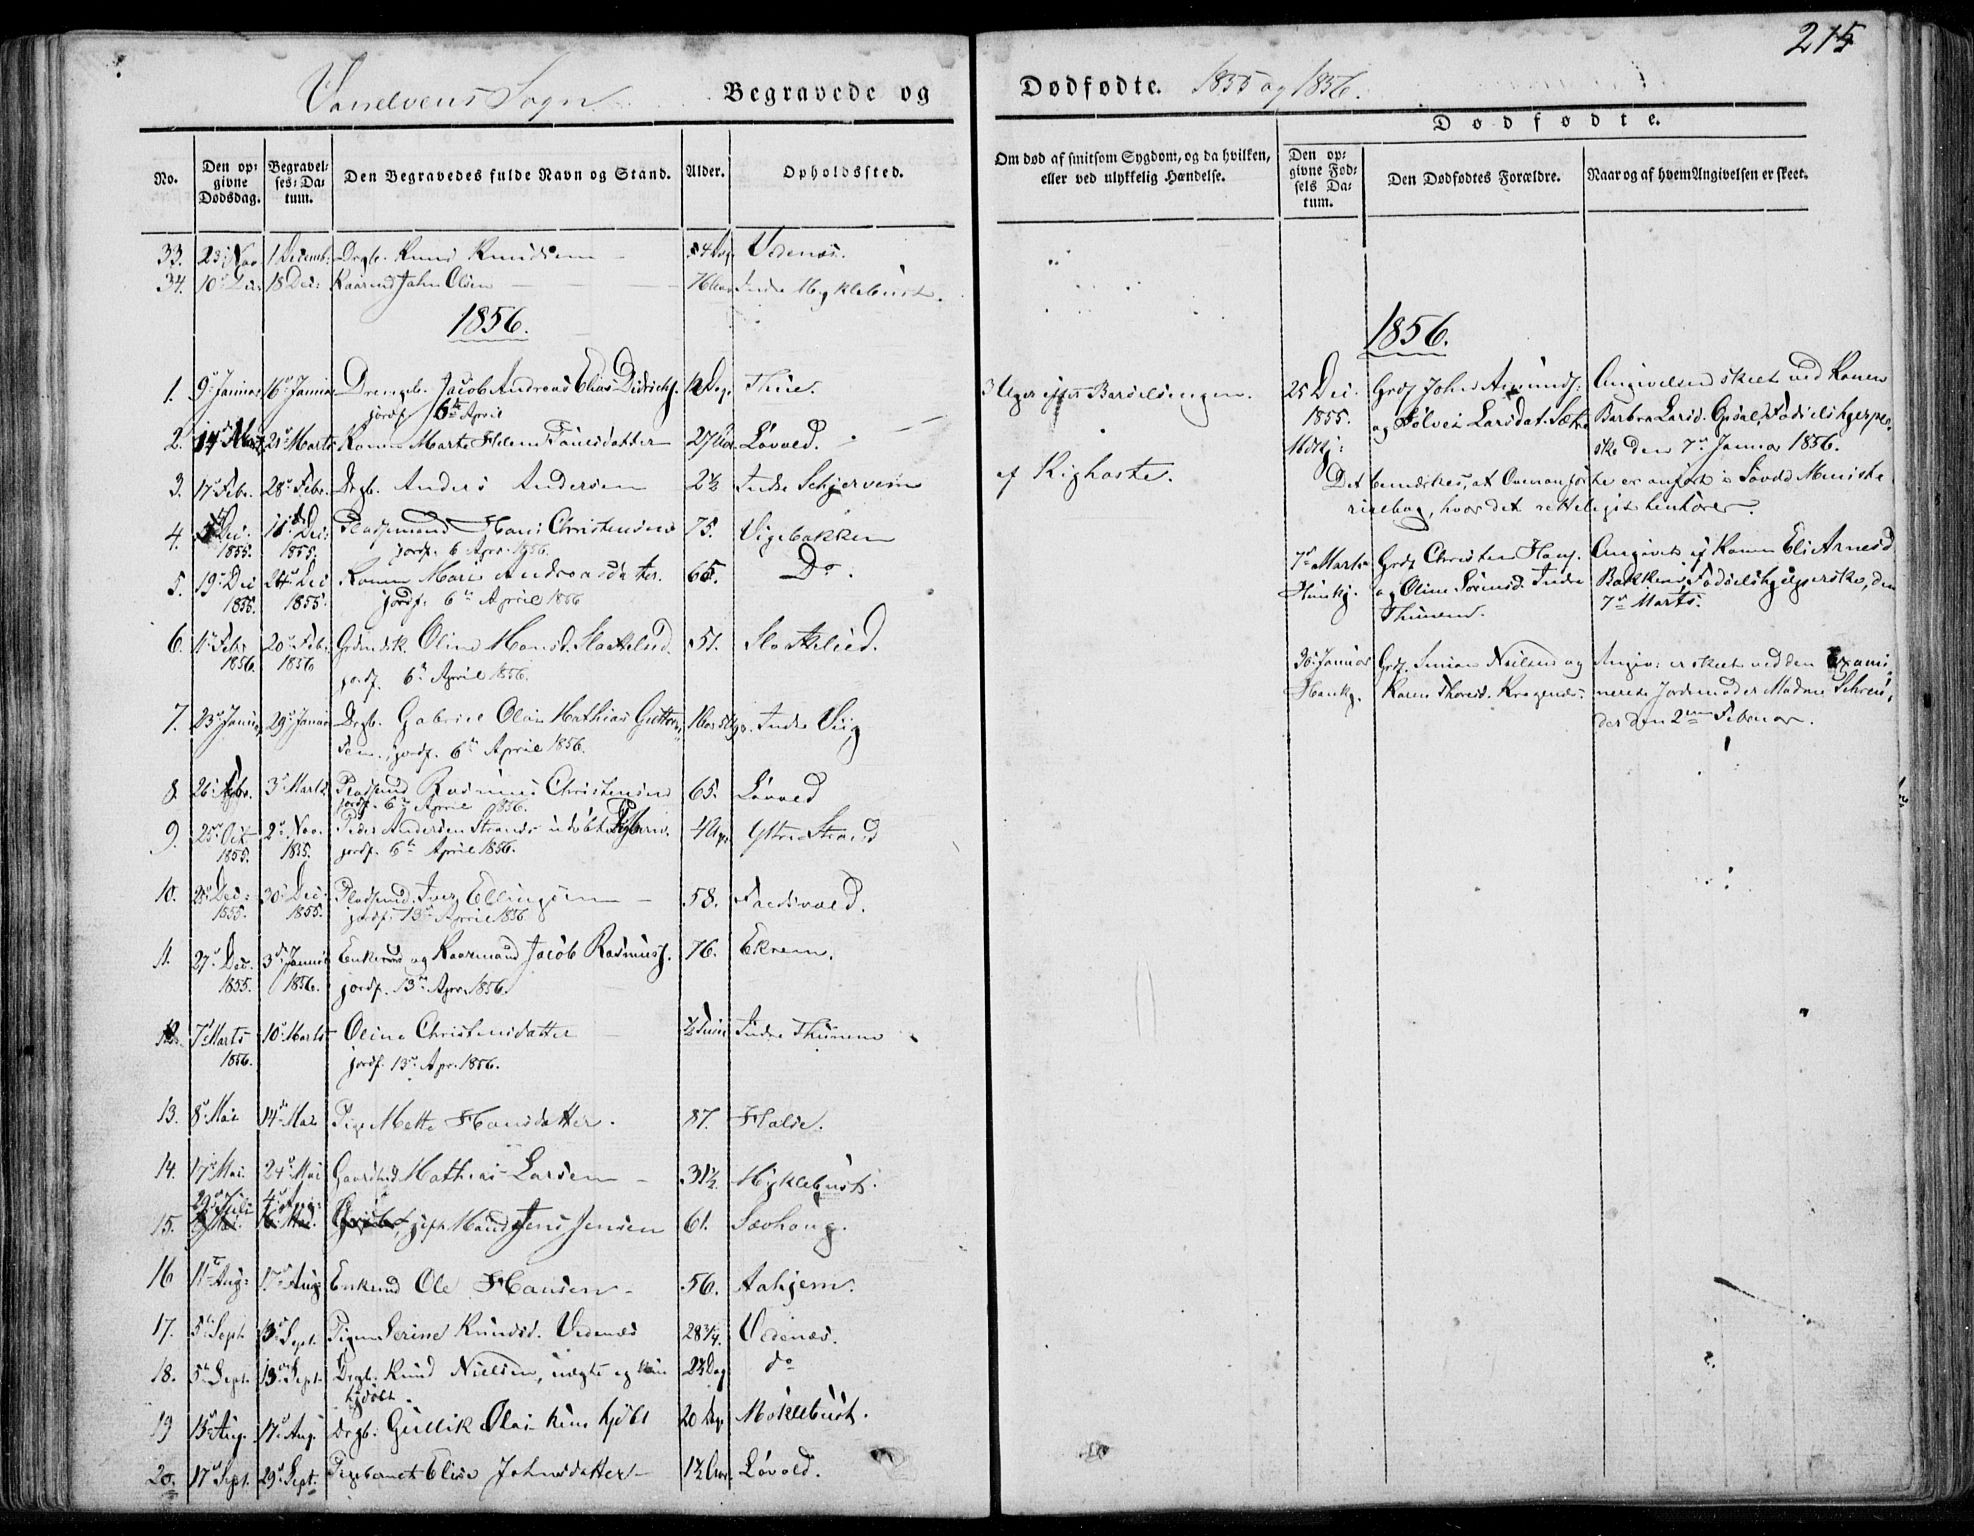 215
Vanelvens Sogn Begravede og Dødfødte. 1855 og 1856.
Dødfødte.
No.
Den opgivne Dødsdag.
Begravelses-Datum.
Den Begravedes fulde Navn og Stand.
Alder.
Opholdssted.
Om død af smitsom Sygdom, og da hvilken, eller ved ulykkelig Hændelse.
Den opgivne Fødsels Datum.
Den Dødfødtes Forældre.
Naar og af hvem Angivelsen er skeet.
33. 23 Nov 1 Decemb. Drgb. Knud Knudsen Vedenæs.
34. 10 Dec 18 Dec: Kaarmd John Olsen Indre Myklebust.
1856.
1. 9 Januar 16 Januar Drengeb. Jacob Andreas Elias Didrichs. 12 Dag. Thue.
jordf. 6te April
2. 14 Marts 21 Marts Konen Marte Helene 27 Aar Løvold.
3. 17 Febr. 28 Febr. Drgb. Anders Andersen 2½ Indre Schjervem af Kighoste.
4. 5 Dec: 11 Dec: Pladsmand Hans Christensen 75. Vigebakken
1855. 1855. jordf. 6 Apr. 1856.
5. 19 Dec 24 Dec Konen Marie Andreasdatter. 65. Do.
1855. 1855. jordf. 6te April 1856
6. 11 Feb. 20 Feb. Oline Hansd. Slottelid 51. Slottelied.
1856. 1856 jordf. 6te April 1856.
7. 23 Januar 29 Januar Drgb. Gabriel Olai Mathias Indre Viig
jordf. 6te April 1856.
8. 26 Febr. 3 Marts Pladsmd Rasmus Christensen 65. Løvold
jordf. 6te April 1856.
9. 25 Oct 2 Nov. Peder Andersen Strand, udøbt 4 Uger Ytre Strand
1855. 1855. jordf. 6te April 1856.
10. 25 Dec: 30 Dec: Pladsmd Iver Ellingsen 58.
1855. 1855. jordf. 13de April 1856
11. 27 Dec. 3 Januar Enkemd og Kaarmand Jacob Rasmuss. 76. Ekrem.
1855. 1856. jordf. 13de Apr. 1856.
12. 7 Marts 10 Marts Oline Christensdatter ½ Time Indre Thunem
1856. jordf. 13de Apr. 1856.
13. 8 Mai 14 Mai Pige Mette Hansdatter. 87. Halse.
14. 17 Mai 24 Mai Gaardmd Mathias Larsen 31½. Myklebust.
29 Juli 4 Aug:
15. Mand Jens Jensen 61. Sævhoug.
16 11 Aug: 17 Aug: Enkemd Ole Hansen 56. Aahjem.
17. 5 Sept 13 Sept. Pigen Serine Knudsd. Vedenæs 28¾. Vedenæs.
18. 5 Sept. 13 Sept. Drgb. Knud Nielsen, uægte og do
hjdøbt
19 13 Aug. 17 Aug. Drgb. Gullik Olai hjdøbt 20 Dag. Moklebust.
20. 17 Sept. 29 Sept. Pigebarnet Elise Johnsdatter 1½ Aar. Løvold.
3 Uger efter Barselsengen.
1856.
25 Dec. 1855.
Grdf John Amunds.
og Sølvei Larsdat. Sætre
Angivelsen skeet ved Konen
Barbra Larsd. Gjsdal, Fødselshjelper
ske den 7 Januar 1856.
Det bemærkes, at Ovenanførte er anført i Søvde Ministe
rialbog, hvor det retteligst henhører.
7 Marts
Hunkj.
Grdf Christen Hans.
og Oline Sørensd. Indre
Thunem.
Angivet af Konen Eli Arnesd
Bakken, Fødselshjelperske, den
7 Marts.
26 Januar
Hankj.
Grdf. Simon Nielsen og
Karen Thoresd.
Angiv: er skeet ved den Exami
nerede Jordemoder Madme Schrø
der den 2den Februar.